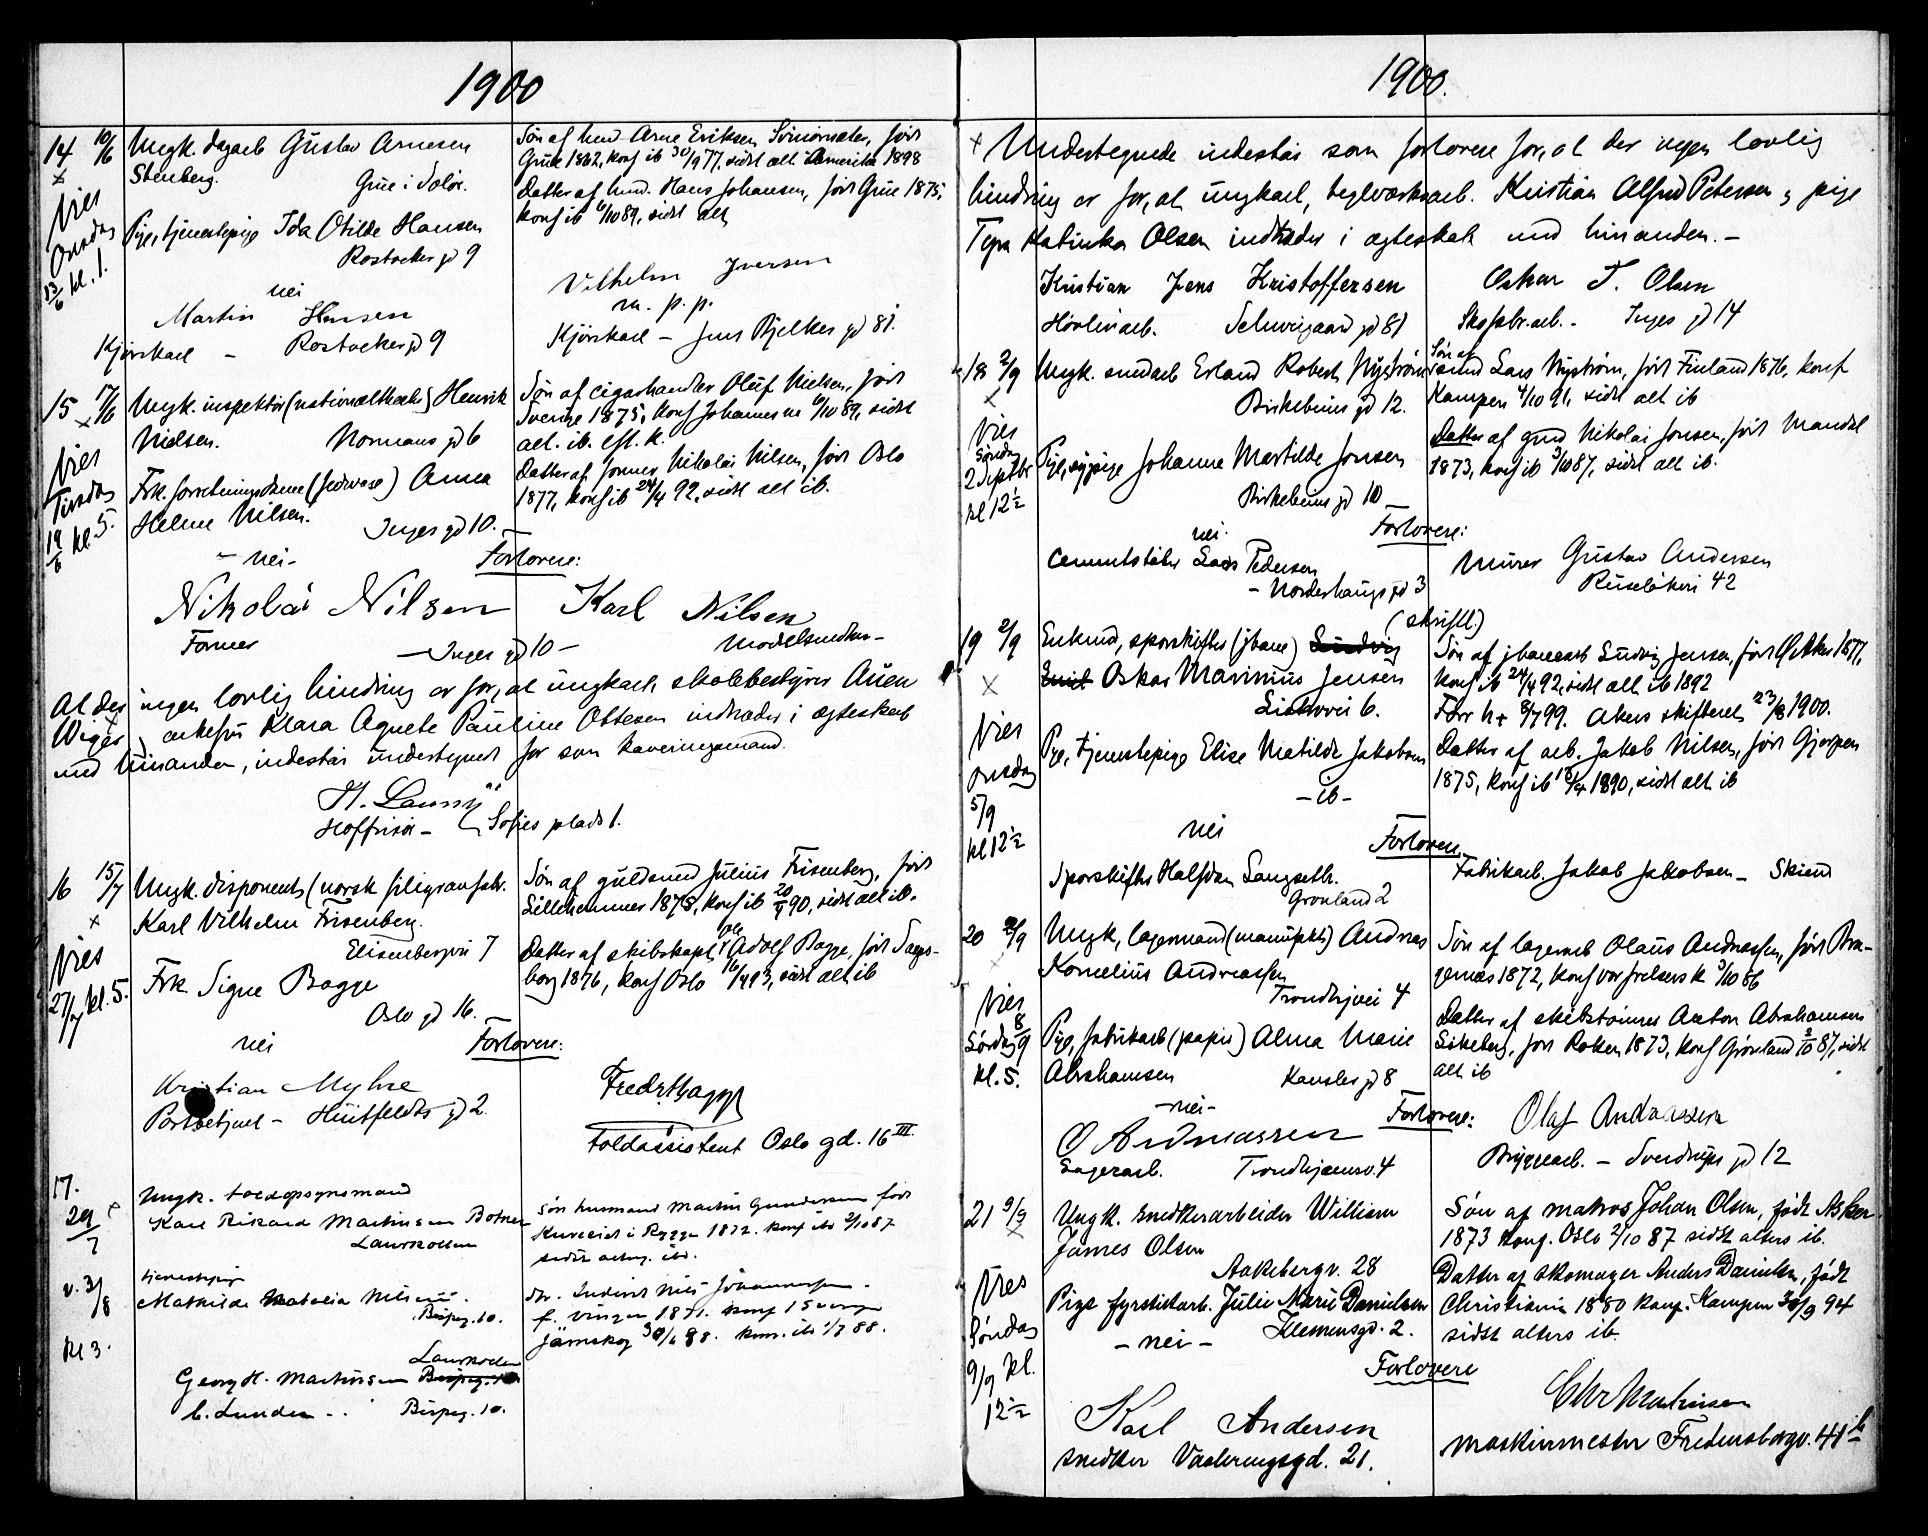 1900
14 10/6 Ungk. dagarb Gustav Arnesen
Stenberg. Grue i Solør.
Søn af husm. Arne Eriksen, født
Grue 1862, konf ib 30/9 77, sidst alt. Amerika 1898
Datter af husm. Hans Johansen, født Grue 1875,
konf ib 6/10 89, sidst alt
Vies
Onsdag
13/6 kl. 1.
Pige, tjenestepige Ida Otilde Hansen
Rostocker gd 9
nei
Martin Hansen
Kjørekarl – Rostocker gd 9
Vilhelm Iversen
m. p. p.
Kjørekarl – Jens Bjelkes gd 81.
15 17/6 Ungk. inspektør (nationaltheatr.) Henrik
Nielsen. Normans gd 6
Søn af cigarhandler Oluf Nielsen, født
Sverige 1875, konf Johannes m 6/10 89, sidst
alt. ib. eft. k.
Vies
Tirsdag
19/6 kl. 5.
Frk. forretningsdame (jernvare) Anna
Helene Nilsen. Inges gd 10. –
Datter af former Nikolai Nilsen, født Oslo
1877, konf ib 24/4 92, sidst alt ib.
– nei –
Forlovere:
Nikolai Nilsen
Former – Inges gd 10 –
Karl Nilsen
Modelsnedker –
At der ingen lovlig hindring er for, at ungkarl, skolebestyrer Asien
Wiger, enkefru Klara Agnete Pauline Ottesen indtræder i ægteskab
med hinanden, indestår undertegnet for som kaveringsmand.
H. Launÿ
Hoffrisør – Sofies plads 1.
16 15/7 Ungk. disponent (norsk filigranfabr.
Karl Vilhelm Frisenberg.
Elisenbergvei 7
Søn af guldsmed Julius Frisenberg, født
Lillehammer 1875, konf ib 20/4 90, sidst alt ib.
Vies
27/7 kl. 5.
Frk Signe Bagge
Oslo gd 16.
Datter af skibskapt. Ole Adolf Bagge, født Sarps-
borg 1876, konf Oslo 16/4 93, sidst alt ib
nei
Forlovere:
Kristian Myhre
Postbetjent – Huitfeldts gd 2.
Fredr. Bagge
Toldassistent Oslo gd. 16 III.
17.
29/7
Ungk. toldopsynsmand
Karl Rikard Martinsen Botner
Laurkollen
søn husmand Martin Gundersen født
i Rygge 1872. konf ib 2/10 87
sidst alterg. ib.
v. 3/8
Kl 3.
tjenestepige
Mathilde Natalia Nilsen.
Bispeg. 10.
dtr. Nils Johannesen.
f. Vinger 1871. konf i Sverige
Järnskog 30/6 88. kom. ib 1/7 88.
Georg H. Martinsen Laurkollen Bispeg. 10
C. Lunden – . Bispeg. 10.
1900.
x Undertegnede indestår som forlovere for, at der ingen lovlig
hindring er for, at ungkarl, teglverksarb. Kristian Alfred Petersen og pige
Tyra Katinka Olsen indtræder i ægteskab med hinanden. –
Kristian Jens Kristoffersen
Høvleriarb. Schweigaards gd 81
Oskar T. Olsen
Skofabr.arb. – Inges gd 14
18 2/9 Ungk. smedarb Erland Robert Nyström
Birkebeiner gd 12.
Søn af
smed Lars Nyström, født Finland 1876, konf
Kampen 4/10 91, sidst alt ib
Vies
Søndag
2 Septbr
kl 12½
Pige, sypige Johanne Martilde Jonsen
Birkebeiner gd 10 –
Datter af gmd Nikolai Jonsen, født Mandal
1873, konf ib 3/10 87, sidst alt ib.
nei.
Forlovere:
Cementstøber Lars Pedersen
– Norderhaugs gd 3
Murer Gustav Andersen
Ruseløkvei 42
(skriftl.)
19 2/9 Enkemd, sporskifter (jbane) Ludvig
Emil Oskar Marinius Jensen
Liakovei 6.
Søn af jbanearb Ludvig Jensen, født Ø. Aker 1877,
konf ib 24/4 92, sidst alt ib 1892
Forr h + 8/7 99. Akers skifteret 23/8 1900.
Vies
onsdag
5/9
kl 12½
Pige, tjenestepige Elise Matilde Jakobsen
– ib –
Datter af arb. Jakob Nilsen, født Gjerpen
1875, konf ib 13/4 1890, sidst alt ib
nei
Forlovere
Sporskifter Halfdan Langseth.
Grønland 2
Fabrikarb. Jakob Jakobsen – Skien
20 2/9 Ungk, lagermand (manufakt.) Andreas
Kornelius Andreassen
Trondhjvei 4
Søn af lagerarb Olaus Andreassen, født Bra-
gernæs 1872, konf vor frelsers k 3/10 86
Vies
Lørdag 8/9
kl. 5.
Pige, fabrikarb (papir) Alma Marie
Abrahamsen Kansler gd 8
Datter af skibstømmer Anton Abrahamsen
Sikeberg, født Rakkestad 1873, konf Grønland 2/10 87, sidst
alt ib
– nei –
Forlovere:
O Andreassen
Lagerarb. Trondhjemsv. 4
Olaf Andreassen
Bryggearb. – Sverdrups gd 12
21 9/9 Ungk. snedkerarbeider William
James Olsen
Aakebergv. 28
Søn af matros Johan Olsen, født Asker
1873 konf. Oslo 2/10 87 sidst alters ib.
Vies
Søndag
9/9 kl.
12½
Pige fyrstikarb. Julie Marie Danielsen
– nei – Klemensgd. 2.
Datter af skomager Anders Danielsen, født
Christiania 1880 konf. Kampen 30/9 94
sidst alters ib.
Forlovere
Karl Andersen
snedker Vaaleringsgd. 21.
Chr Martinsen
maskinmester Fredensborgv. 41 b